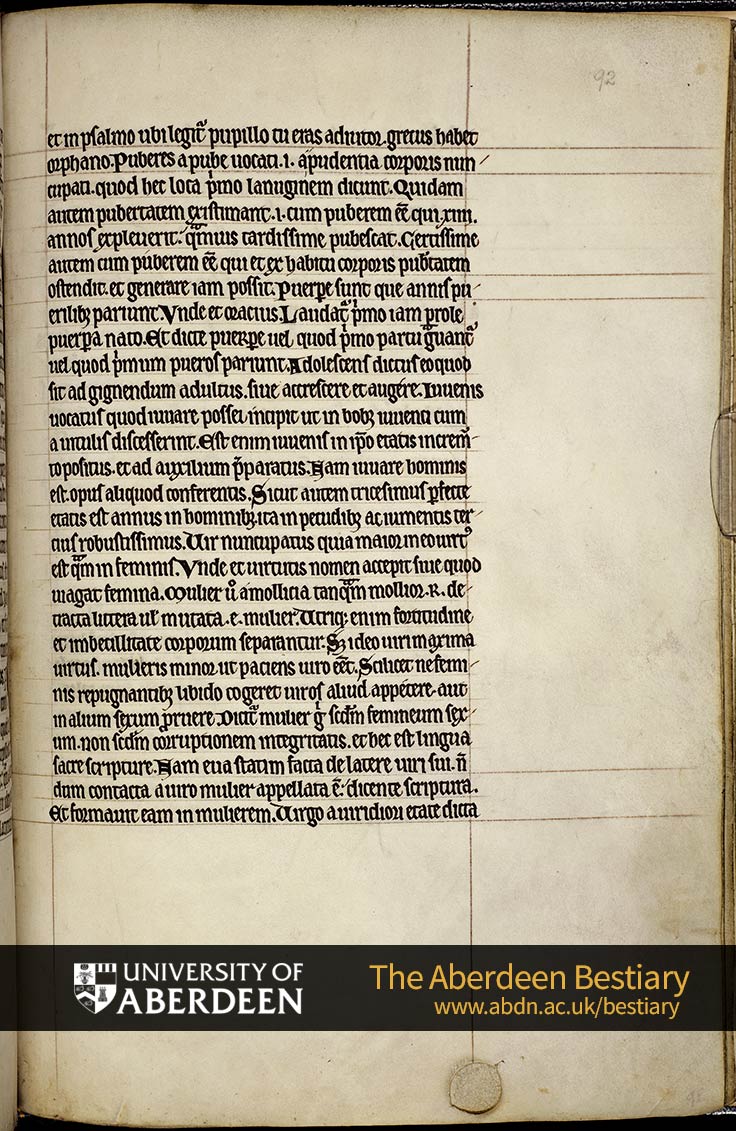 92
et in psalmo ubi legit᷑ pupillo tu eras adiutor. grecus habet
orphano. Puberes a pube uocati .i. a pudentia corporis nun
cupati. quod hec loca p̄mo lanuginem dicunt. Quidam
autem pubertatem existimant .i. cum puberem eē qui .xiiii.
annos expleuerit. q̄muis tardissime pubescat. Certissime
autem eum puberem eē qui et ex habitu corporis pub̄tatem
ostendit. et generare iam possit. Puerpe sunt que annis pu
erilib; pariunt. Vnde et oracius. Laudat᷑ p̄mo iam prole
puerpa nato. Et dicte puerpe uel quod p̄mo partu g̃uant᷑
uel quod p̄mum pueros pariunt. Adolescens dictus eo quod
sit ad gignendum adultus. siue accrescere et augere. Iuuenis
uocatus quod iuuare posse incipit ut in bob; iuuenci cum
a uitulis discesserint. Est enim iuuenis in ip̄o etatis increm̄
to positus. et ad auxilium p̄paratus. Nam iuuare hominis
est. opus aliquod conferentis. Sicut autem tricesimus p̱fecte
etatis est annus in hominib; ita in pecudib; ac iumentis ter
cius robustissimus. Uir nuncupatus quia maior in eo uirt᷒
est q̄m in feminis. Vnde et uirtutis nomen accepit siue quod
ui agat femina. Mulier ū a mollicia tanq̄m mollior .R. de
tracta littera ul̵ mutata .e. mulier. Utriq; enim fortitudine
et imbecillitate corporum separantur. S; ideo uiri maxima
uirtus. mulieris minor ut paciens uiro eēt. Scilicet ne femi
nis repugnantib; libido cogeret uiros aliud appetere. aut
in alium sexum p̄ruere. Dicit᷑ mulier g̊ scd̄m femineum sex
um. non scd̄m corruptionem integritatis. et hec est lingua
sacre scripture. Nam eua statim facta de latere uiri sui. ñ
dum contacta a uiro mulier appellata ē. dicente scriptura.
Et formauit eam in mulierem. Uirgo a uiridiori etate dicta
UNIVERSITY OF
ABERDEEN
The Aberdeen Bestiary
www.abdn.ac.uk/bestiary